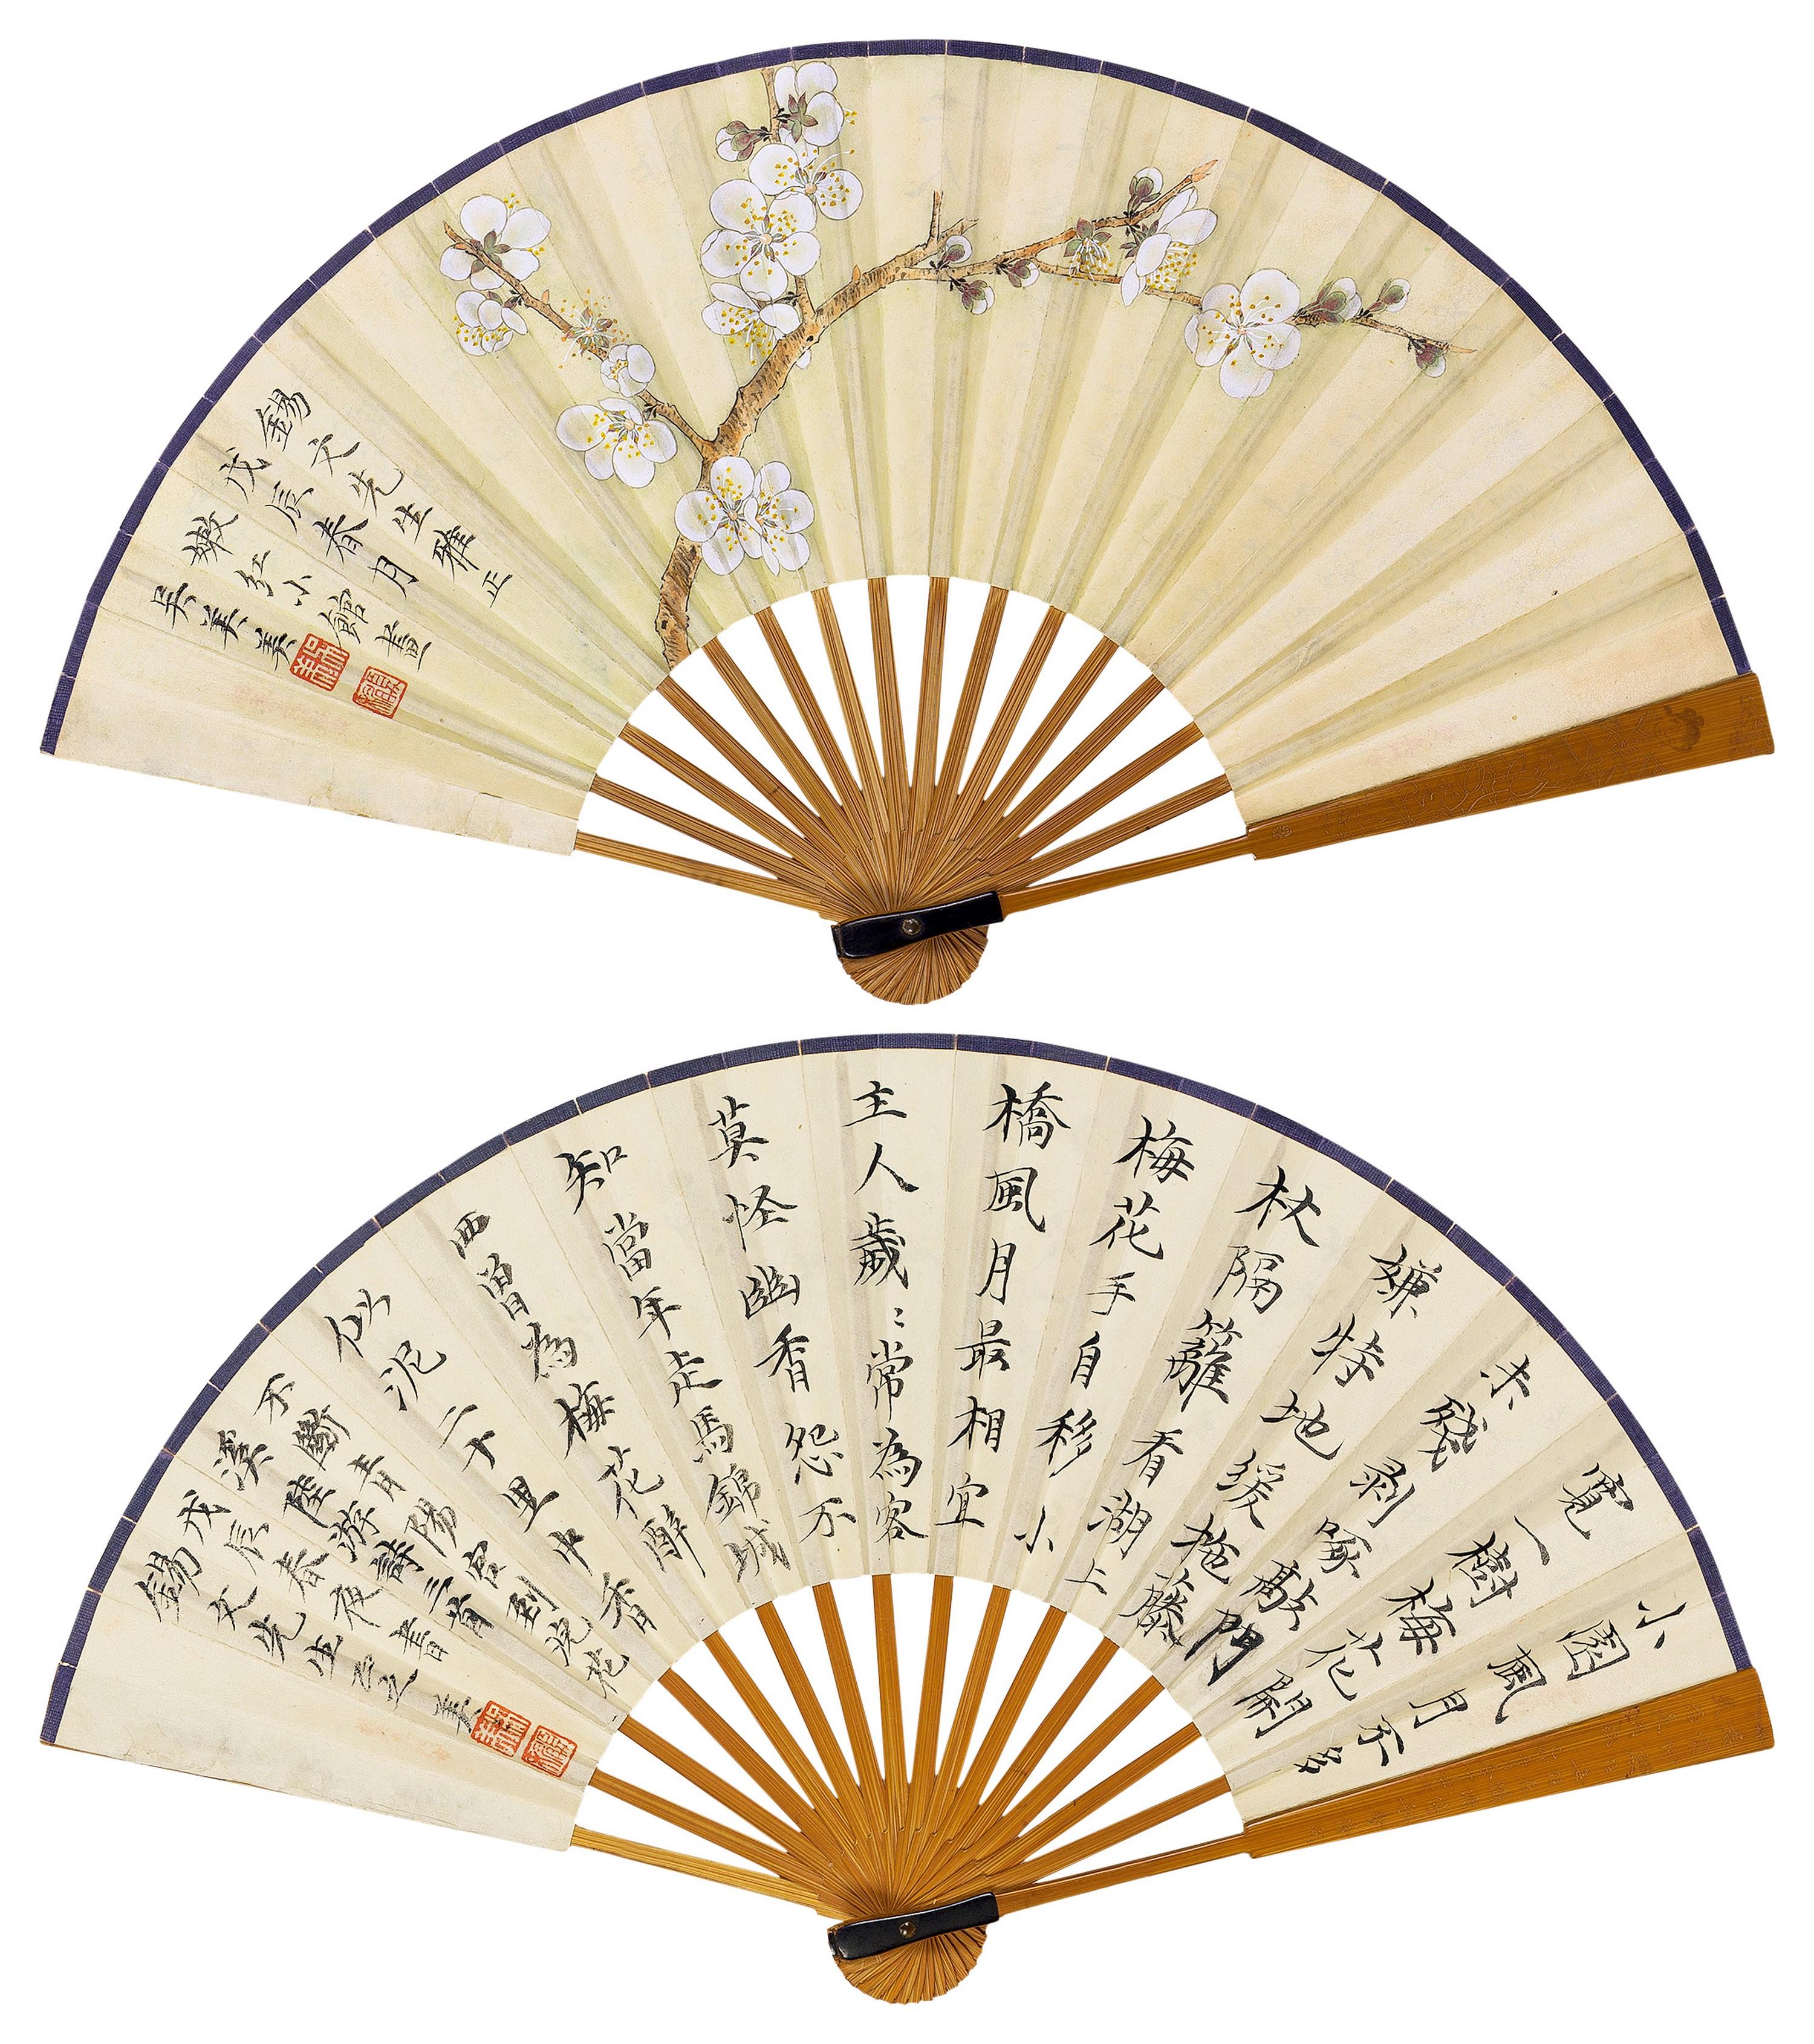 錫文先生雅正
戊辰春月
嫩紅小館畫
吳美美
小園風月不多
寬一樹梅花開
未殘剝啄敲門
嫌特地緩拖藤
杖隔籬看湖上
梅花手自移小
橋風月最相宜
主人歲〻常為客
莫怪幽香怨不
知當年走馬錦城
西曾為梅花醉
似泥二十里中香
不斷青陽宮到浣花
溪 陸游詩三首
戊辰春夜書
錫文先生正之 美